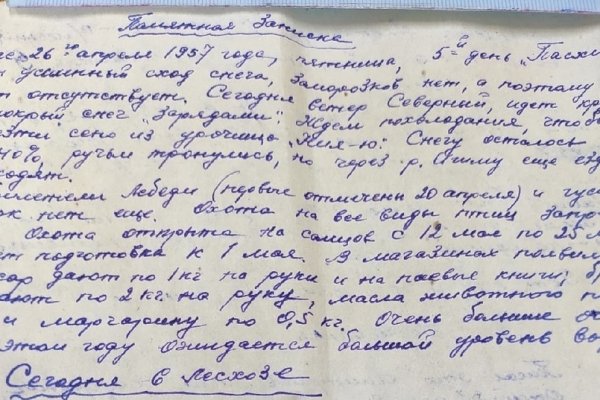 Памятная Записка
26го апреля 1957 года, пятница, 5й день „Пасхи
усиленный сход снега, Заморозков нет, а поэтому
т отсутствует. Сегодня ветер Северный, идет кр
мокрый снег „Зарядами". Ждем похолодания, чтоб
зти сено из урочища „Кия-ю". Снегу осталось
40%, ручьи тронулись, но через р. еще езд
ходят.
рилетели Лебеди (первые отмечены 20 апреля) и гус
ок нет еще. Охота на все виды птиц запре
Охота открыта на самцов с 12 мая по 25 м
ет подготовка к 1 мая. В магазинах появил
сар дают по 1 кг на руки и на паевые книги;
ают по 2 кг. на руку, масла животного п
и маргарину по 0,5 кг. Очень большие
этом году ожидается большой уровень во
Сегодня в Лесхозе